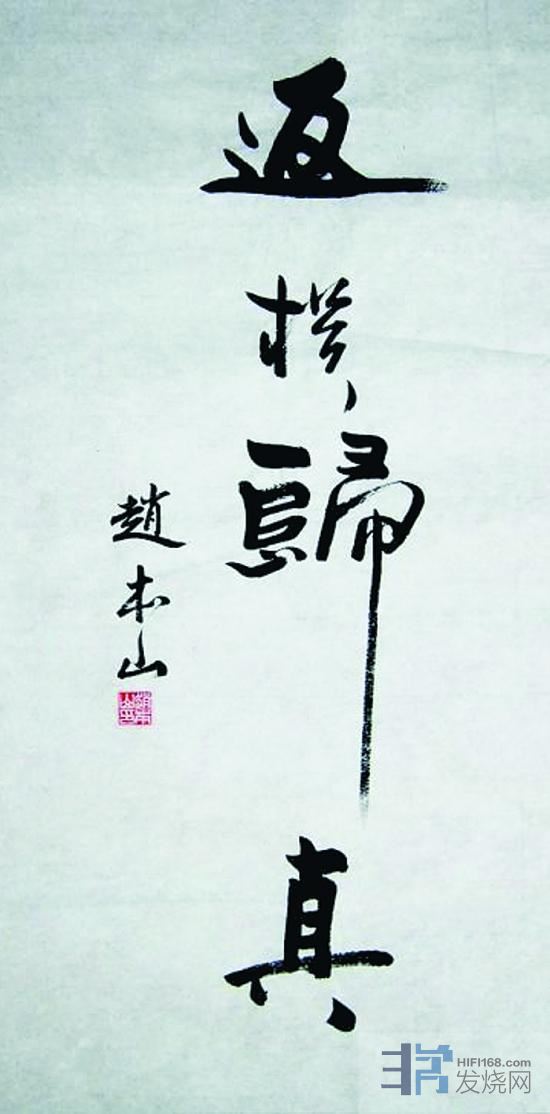 返樸歸真
趙本山
HIFI168.com
发烧网